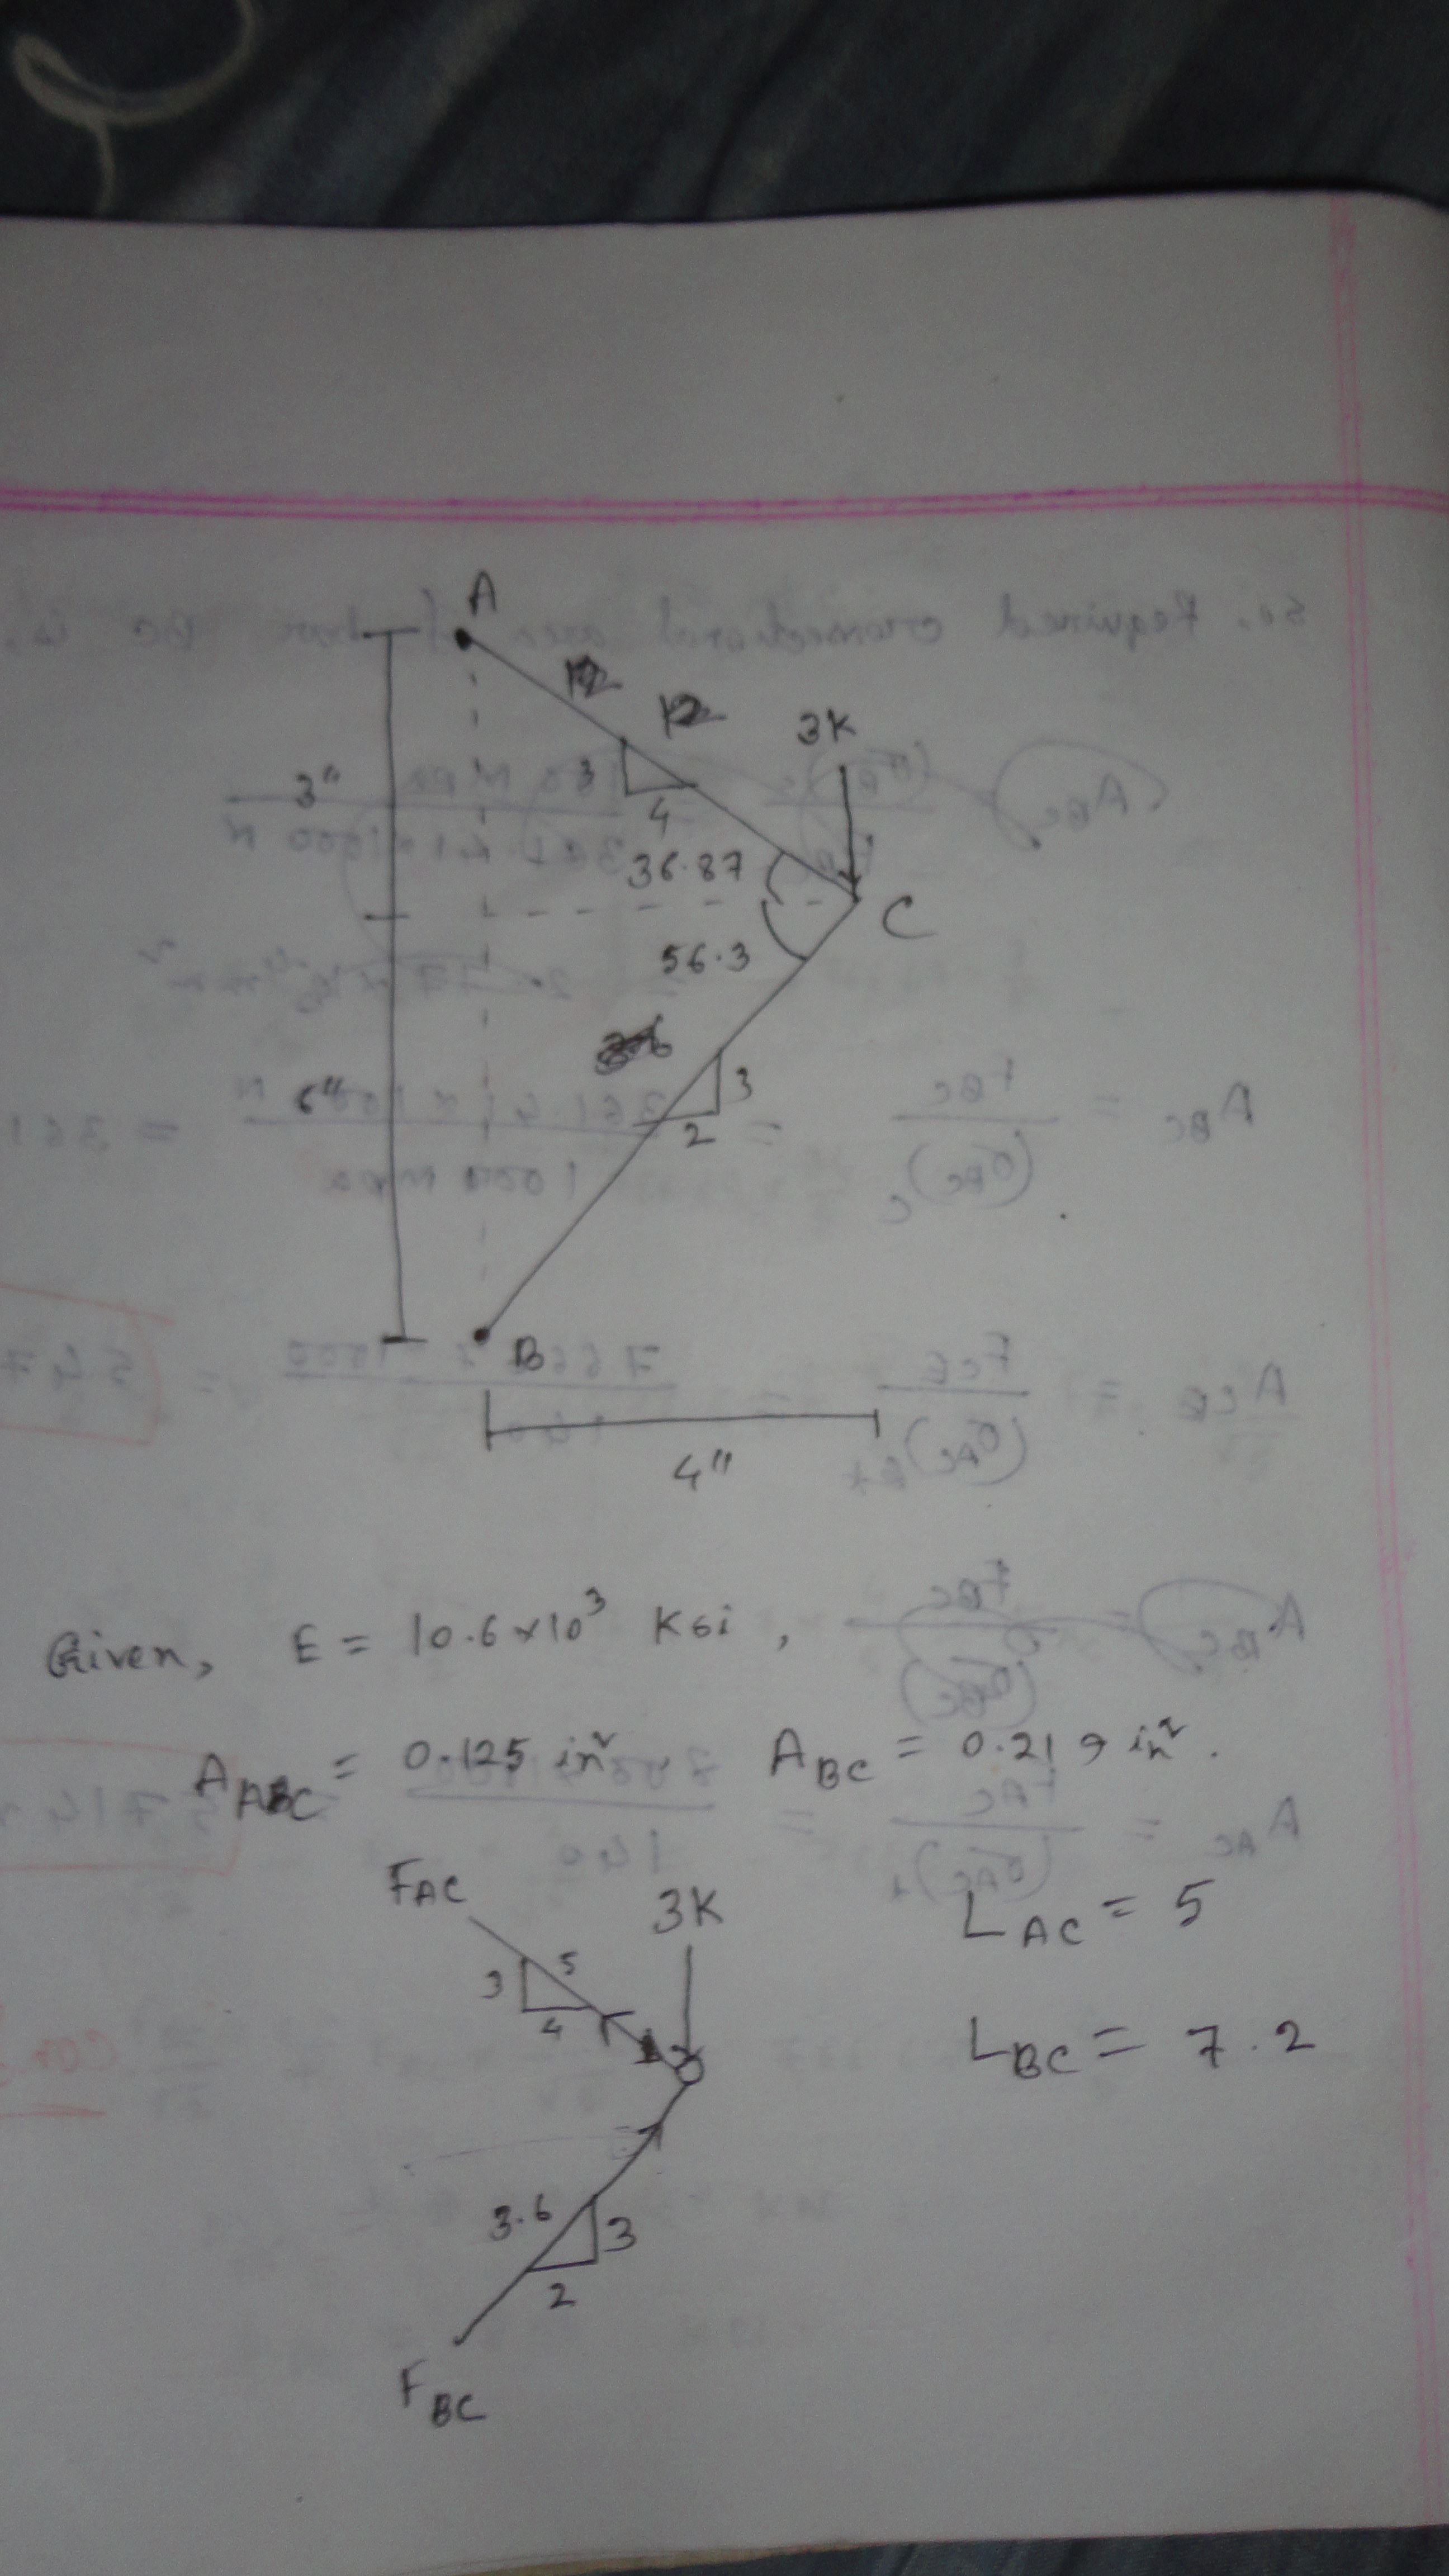 A
3K
3"
3
4
36.87
C
56.3
6"
3
2
B
4"
Given, E = 10.6×10³ Ksi,
A_AC = 0.125 in² A_BC = 0.219 in².
F_AC
3K
L_AC = 5
3
5
4
L_BC = 7.2
3.6
3
2
F_BC